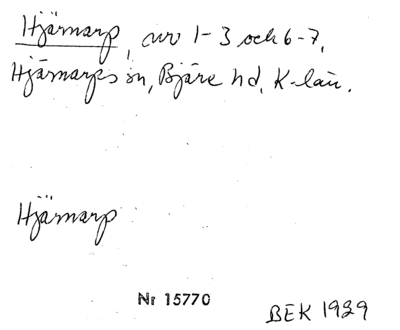 Hjärnarp, av 1-3 och 6-7,
Hjärnarps sn, Bjäre hd, K-län.
Hjärnarp
Nr 15770
BEK 1929